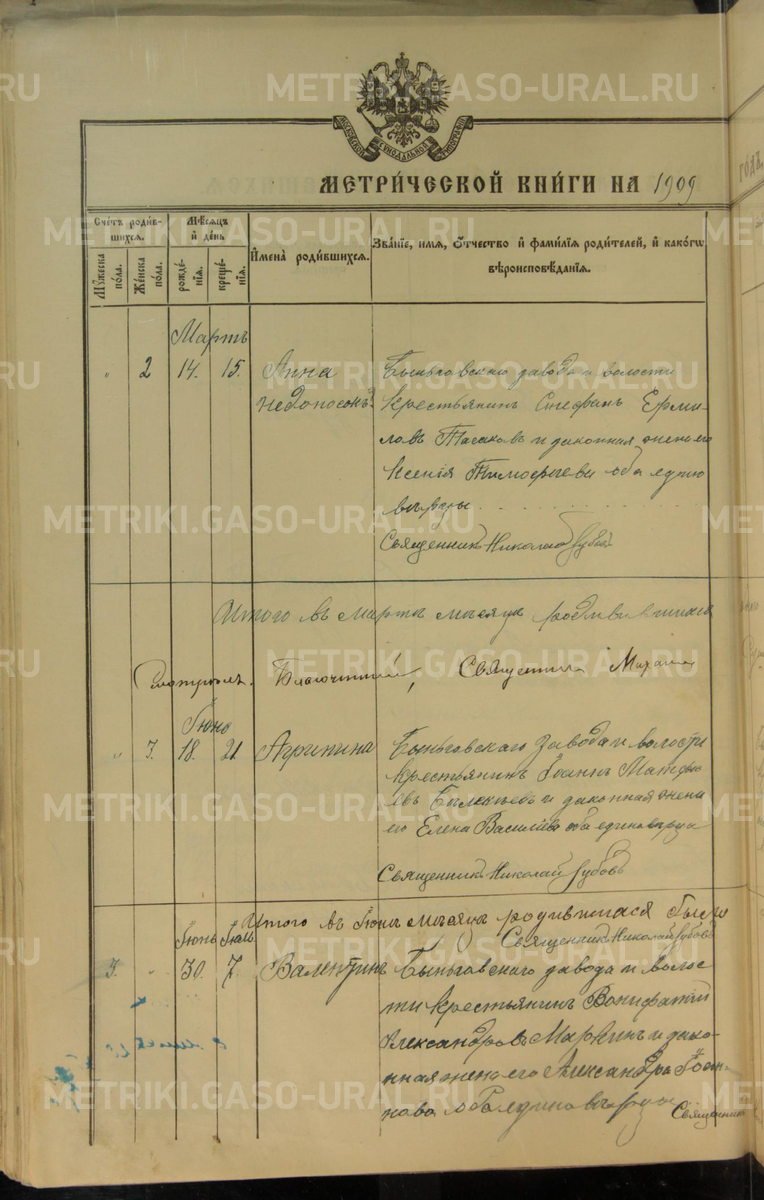 МОСКОВСКОЙ СѴНОДАЛЬНОЙ ТИПОГРАФІИ
МЕТРИ́ЧЕСКОЙ КНИ́ГИ НА 1909
Сче́тъ роди́вшихся.
Му́жеска по́ла.
Же́нска по́ла.
Мѣ́сяцъ и де́нь
рожде́нія.
креще́нія.
Имена̀ роди́вшихся.
Зва́ніе, имя, о́тчество и фами́лія роди́телей, и како́гѡ вѣроисповѣ́данія.
Мартъ
" 2 14. 15. Анна
недоносокъ
Быньговскаго завода и волости
крестьянинъ Стефанъ Ерми-
ловъ и законная жена его
Ксенія Тимофѣева оба едино
вѣрцы
Священникъ Николай Зубовъ
Итого въ мартѣ мѣсяцѣ родившихся
Смотрѣлъ. Благочинный, Священникъ Михаил
Іюнь
" 3. 18. 21. Агрипина
Быньговскаго Завода и волости
крестьянинъ Іоаннъ Матфѣ
евъ и законная жена
его Елена Василіева оба единовѣрцы
Священникъ Николай Зубовъ
Итого въ Іюнѣ мѣсяцѣ родившихся было
Священникъ Николай Зубовъ
Іюнь Іюль
3. " 30. 7. Валентинъ
Быньговскаго завода и волос
ти крестьянинъ Вонифатій
Александровъ Маркинъ и зако-
нная жена его Александра Іоан-
нова оба единовѣрцы
Священникъ
METRIKI.GASO-URAL.RU